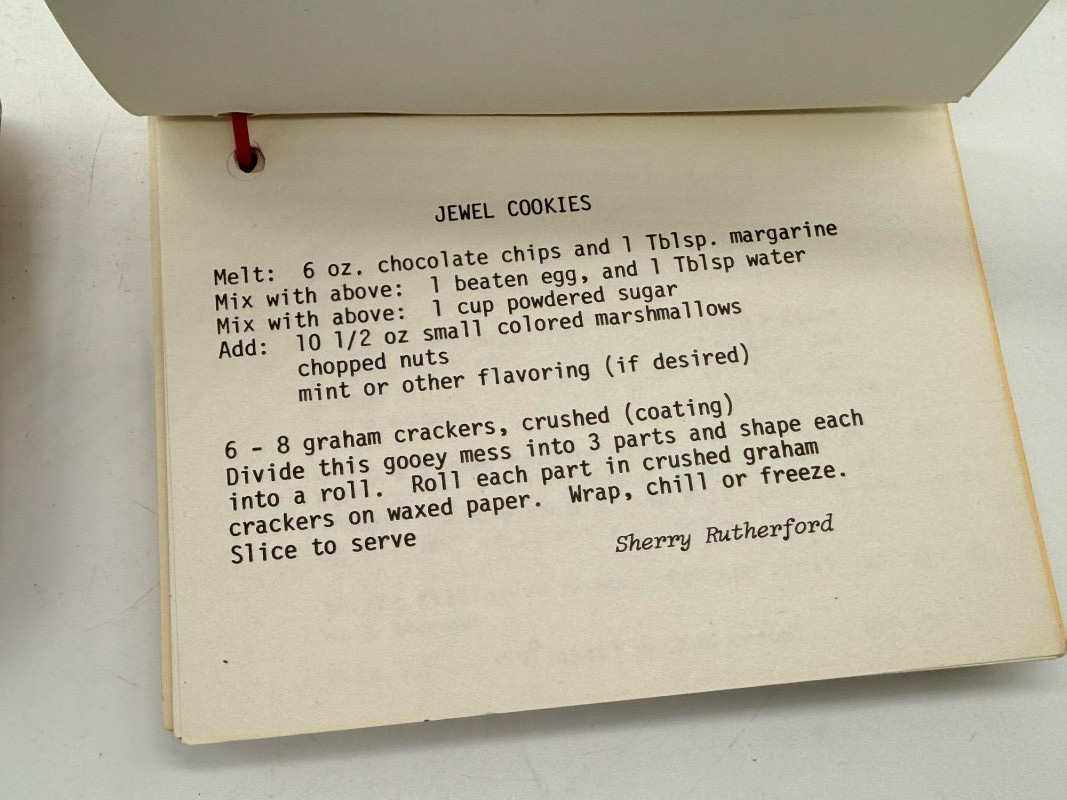 JEWEL COOKIES
Melt: 6 oz. chocolate chips and 1 Tblsp. margarine
Mix with above: 1 beaten egg, and 1 Tblsp water
Mix with above: 1 cup powdered sugar
Add: 10 1/2 oz small colored marshmallows
chopped nuts
mint or other flavoring (if desired)
6 - 8 graham crackers, crushed (coating)
Divide this gooey mess into 3 parts and shape each
into a roll. Roll each part in crushed graham
crackers on waxed paper. Wrap, chill or freeze.
Slice to serve
Sherry Rutherford